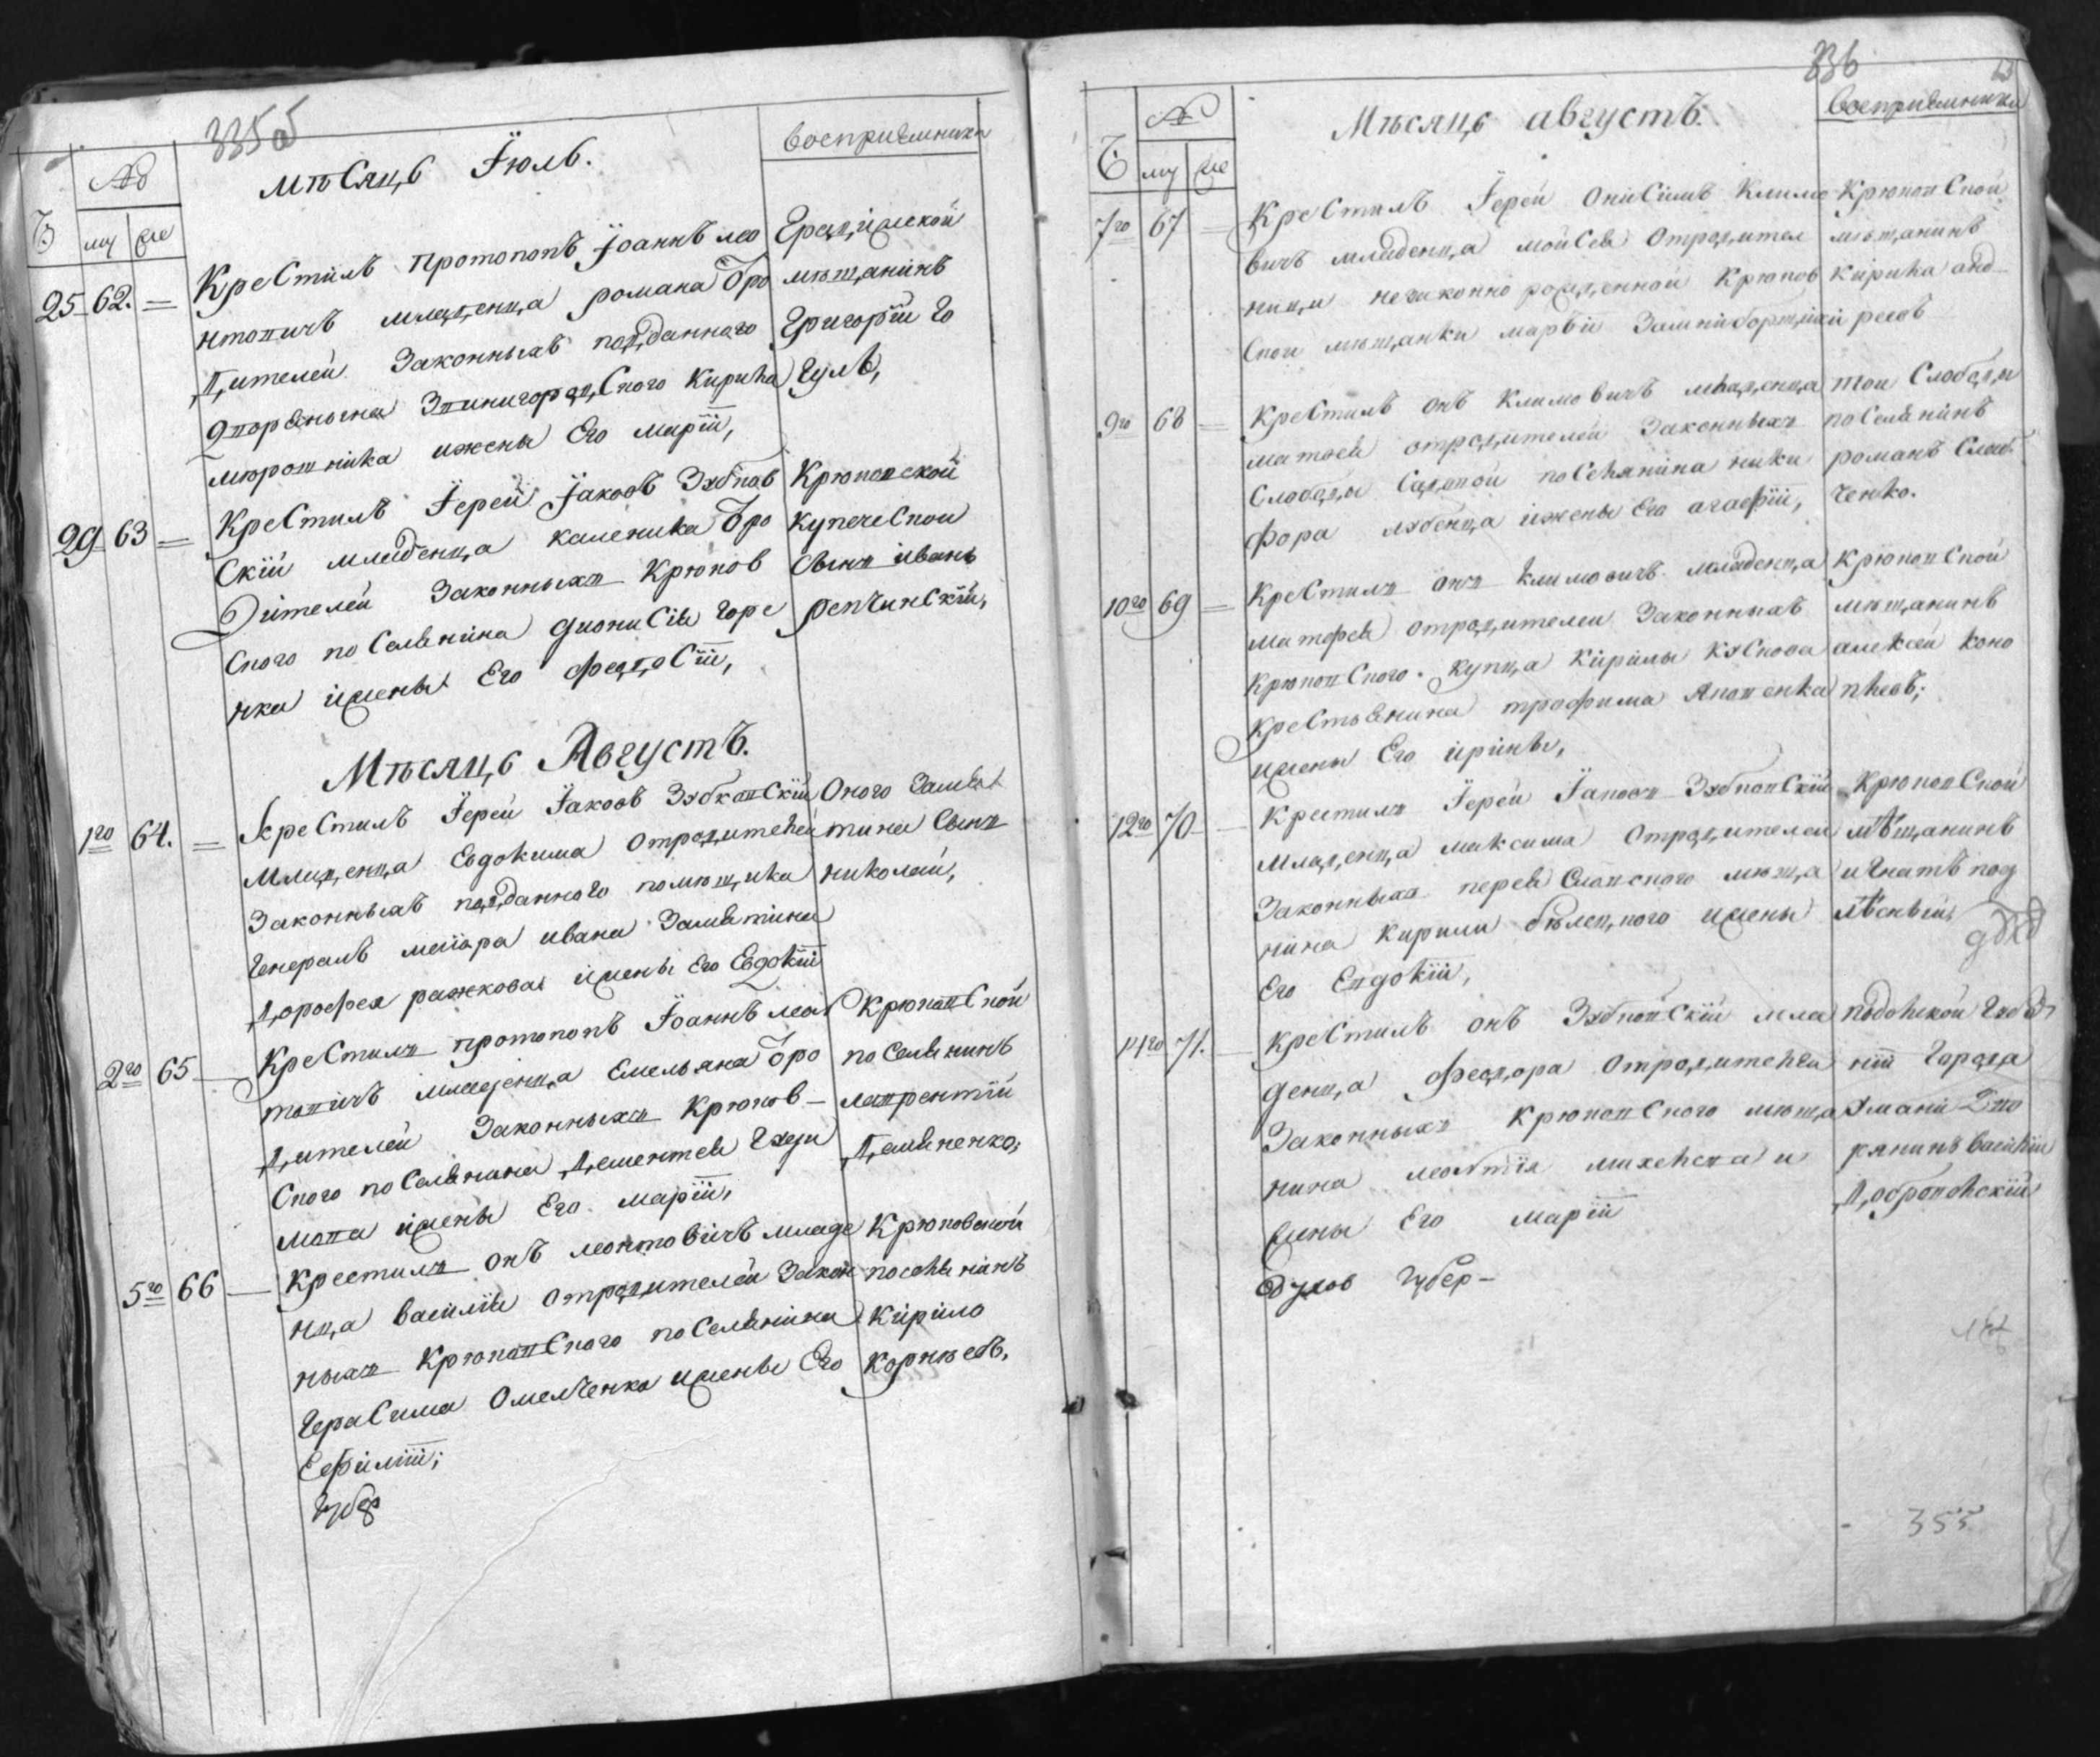 335 об
№
Ч. му же
мѣсяцъ Їюль.
воспрїемники
25 62. Крестилъ протопопъ Їоаннъ лео
нтовичъ младенца романа ѿро
дителей законныхъ подданного
дворянина Звинигородского кириka
мирошника ижены Его марїи,
Градижской
мѣщанинъ
Григорїй Го
гуль,
29 63 Крестилъ Їерей Їаковъ Зубков
скїй младенца каленика ѿро
дителей законныхъ Крюков
ского поселянина дионисїя горе
нки ижены Его федосїи,
Крюковской
купеческой
сынъ иванъ
репчинскїй,
Мѣсяцъ Августъ.
1го 64. Крестилъ Їерей Їаковъ Зубковскїй
младенца Евдокима отродителей
законныхъ подданного помѣщика
генералъ маиора ивана Замятина
дорофея ражкова ижены Его Евдокїи
Оного Замя
тина сынъ
николай,
2го 65 Крестилъ протопопъ Їоаннъ леон
товичъ младенца Емельяна ѿро
дителей законныхъ Крюков-
ского поселянина дементея
ижены Его марїи,
Крюковской
поселянинъ
лаврентїй
демяненко;
5го 66 Крестилъ онъ леонтовичъ младе
нца василїя отродителей закон
ныхъ Крюковского поселянина
Герасима Омелченка ижены Его
Еефимїи;
Губер
Крюковской
поселянинъ
кирило
корнѣевъ,
336
№
Ч. му же
Мѣсяцъ августъ.
воспрїемники
7го 67 Крестилъ Їерей Онисимъ Климо
вичъ младенца моисея отродител
ници незаконно рожденной Крюков
ской мѣщанки марфы
Крюковской
мѣщанинъ
кирика анд
реевъ
9го 68 Крестилъ онъ Климовичъ младенца
матвея отродителей законныхъ
слободы Садовой поселянина ники
фора ижены Его агафїи,
той слободы
поселянинъ
романъ
ченко.
10го 69 Крестилъ онъ климовичъ младенца
матфея отродителей законныхъ
крюковского купца кирилы
крестянина трофима
ижены Его ирины,
Крюковской
мѣщанинъ
алексей коно
12го 70 Крестилъ Їерей Їаковъ Зубковскїй
младенца максима отродителей
законныхъ мѣща
нина кирили ижены
Его Евдокїи,
Крюковской
мѣщанинъ
игнатъ под
лѣсный
14го 71. Крестилъ онъ Зубковскїй мла
денца федора отродителей
законныхъ крюковского мѣща
нина леонтїя и
жины Его марїи
Губер-
подолской губер
нїи города
Умани дво
рянинъ василїй
добровольскїй
355